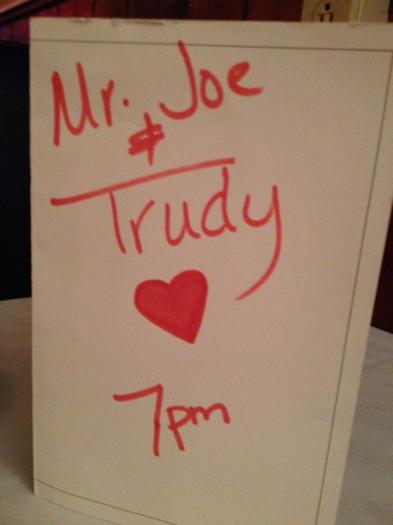 Mr. Joe
&
Trudy
7pm